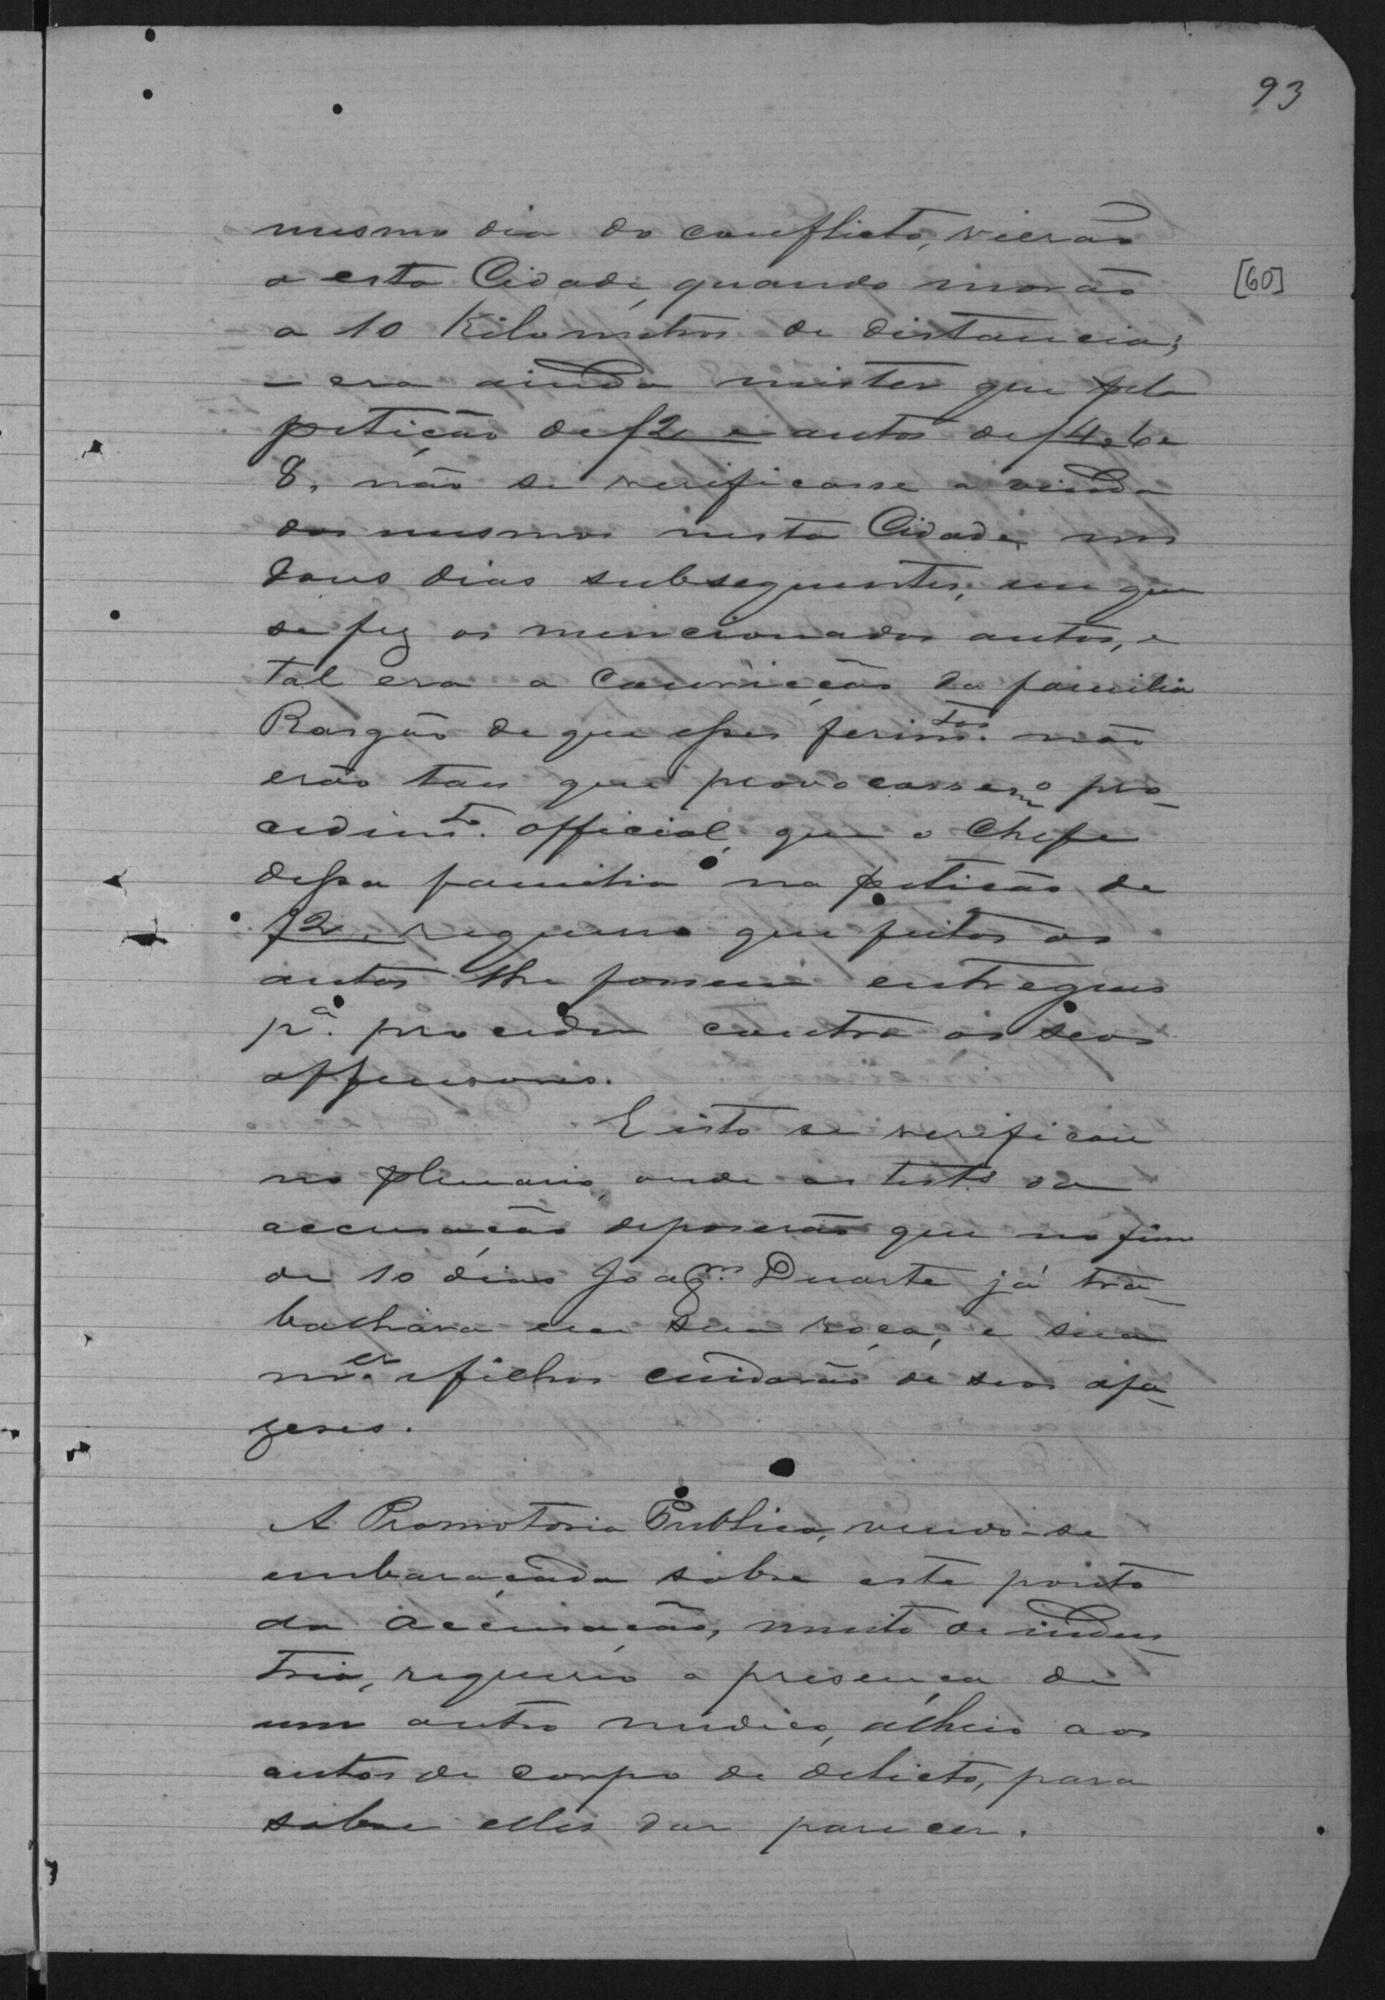 93
mesmo dia do conflicto, vierão
a esta Cidade, quando morão
[60]
a 10 Kilometros de distancia;
— era ainda mister que pela
petição de f2 e autos de f4 e 6 e
8, não se verificasse a vinda
dos mesmos nesta Cidade nos
dous dias subsequentes, em que
se fez os mencionados autos, e
tal era a convicção da familia
Rasgão de que esses ferimtos. não
erão taes que provocassem o pro-
cedimto. official, que o Chefe
dessa familia na petição de
f2, requereu que feitos os
autos lhe fossem entregues
pa. proceder contra os seos
offensores.
E isto se verificou
no plenario, onde as testas da
accusação deposerão que no fim
de 10 dias Joaqm. Duarte já tra-
balhava em sua roça, e sua
mer. e filhos cuidavão de seos afa-
zeres.
A Promotoria Publica, vendo-se
embaraçada sobre este ponto
da accusação, muito de indus-
tria, requereo a presença de
um outro medico, alheio aos
autos de corpo de delicto, para
sobre elles dar parecer.